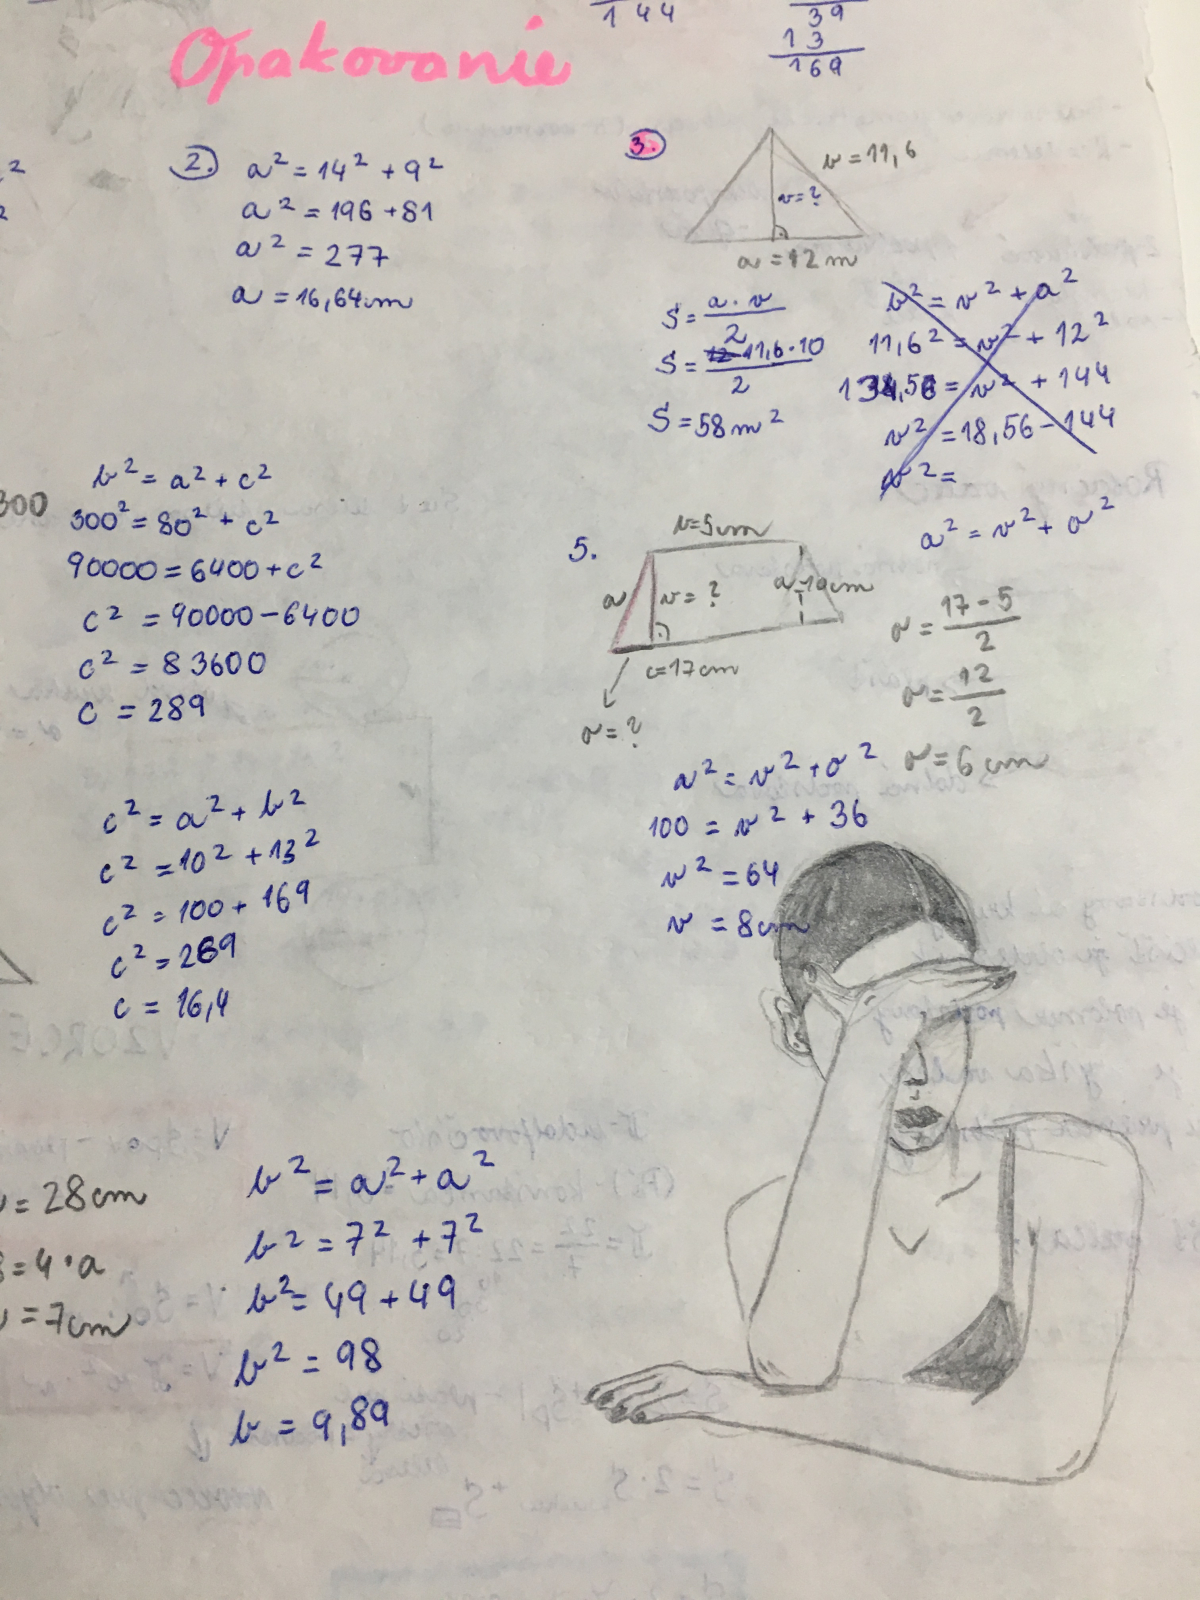 144
39
13
169
Opakovanie
2
2
2. a² = 14² + 9²
a² = 196 + 81
a² = 277
a = 16,64cm
3.
b = 11,6
v = ?
a = 12 m
S = a · v / 2
S = 11,6 · 10 / 2
S = 58m²
b² = v² + a²
11,6² = v² + 12²
= v² + 144
v² = 18,56 - 144
v² =
a² = v² + a²
300
b² = a² + c²
300² = 80² + c²
90000 = 6400 + c²
c² = 90000 - 6400
c² = 83600
c = 289
5.
b=5cm
a
v = ?
a=10cm
c=17cm
a = ?
a = 17 - 5 / 2
a = 12 / 2
a = 6cm
a² = v² + a²
100 = v² + 36
v² = 64
v = 8cm
c² = a² + b²
c² = 10² + 13²
c² = 100 + 169
c² = 269
c = 16,4
= 28cm
= 4 · a
= 7cm
b² = a² + a²
b² = 7² + 7²
b² = 49 + 49
b² = 98
b = 9,89